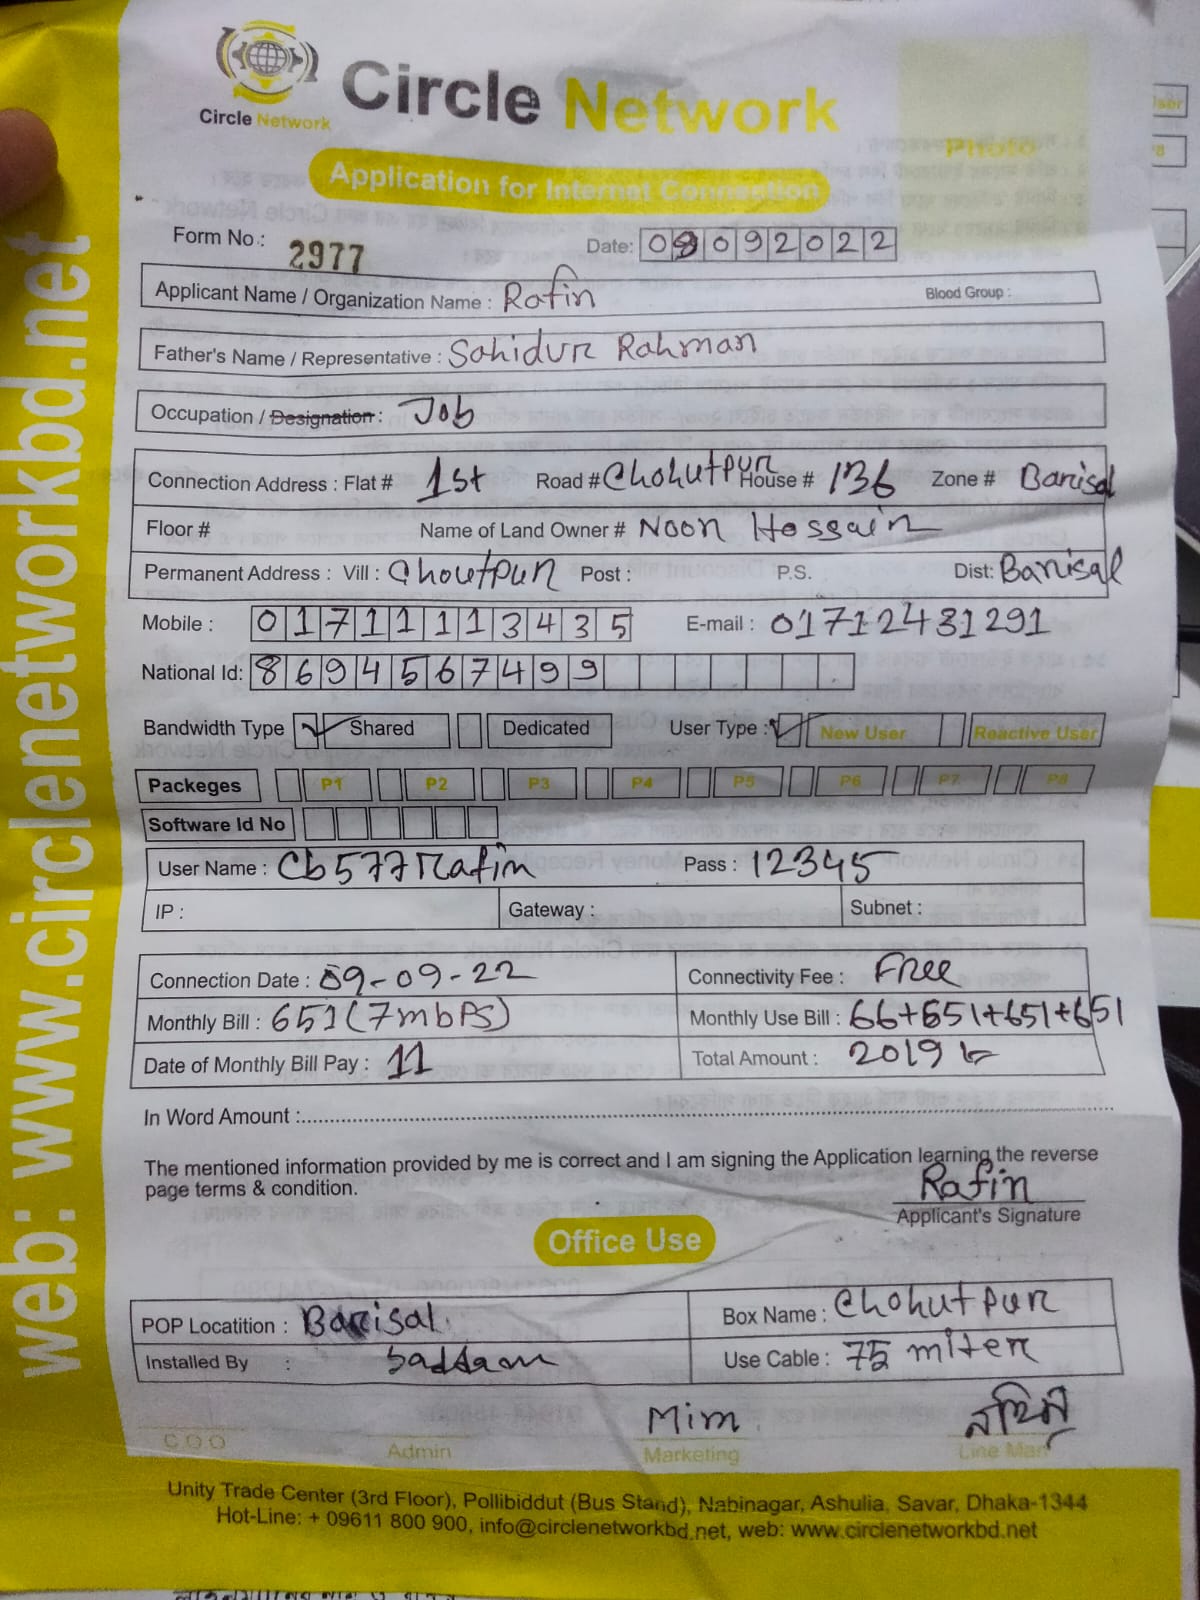 web: www.circlenetworkbd.net
Circle Network
Circle Network
Photo
Application for Internet Connection
Form No : 2977 Date: 08092022
Applicant Name / Organization Name : Rafin Blood Group :
Father's Name / Representative : Sahidur Rahman
Occupation / Designation : Job
Connection Address : Flat # 1st Road # Chohutpur House # 136 Zone # Barisal
Floor # Name of Land Owner # Noor Hossain
Permanent Address : Vill : Choutpur Post : P.S. Dist: Barisal
Mobile : 01711113435 E-mail : 01712431291
National Id: 8694567499
Bandwidth Type Shared Dedicated User Type : New User Reactive User
Packeges P1 P2 P3 P4 P5 P6 P7 P8
Software Id No
User Name : Cb577Rafin Pass : 12345
IP : Gateway : Subnet :
Connection Date : 09-09-22 Connectivity Fee : Free
Monthly Bill : 651(7mbPs) Monthly Use Bill : 66+651+651+651
Date of Monthly Bill Pay : 11 Total Amount : 2019
In Word Amount :
The mentioned information provided by me is correct and I am signing the Application learning the reverse
page terms & condition.
Rafin
Applicant's Signature
Office Use
POP Locatition : Barisal Box Name : Chohutpur
Installed By : Saddam Use Cable : 75 miter
Mim
C.O.O Admin Marketing Line Man
Unity Trade Center (3rd Floor), Pollibiddut (Bus Stand), Nabinagar, Ashulia, Savar, Dhaka-1344
Hot-Line: + 09611 800 900, info@circlenetworkbd.net, web: www.circlenetworkbd.net